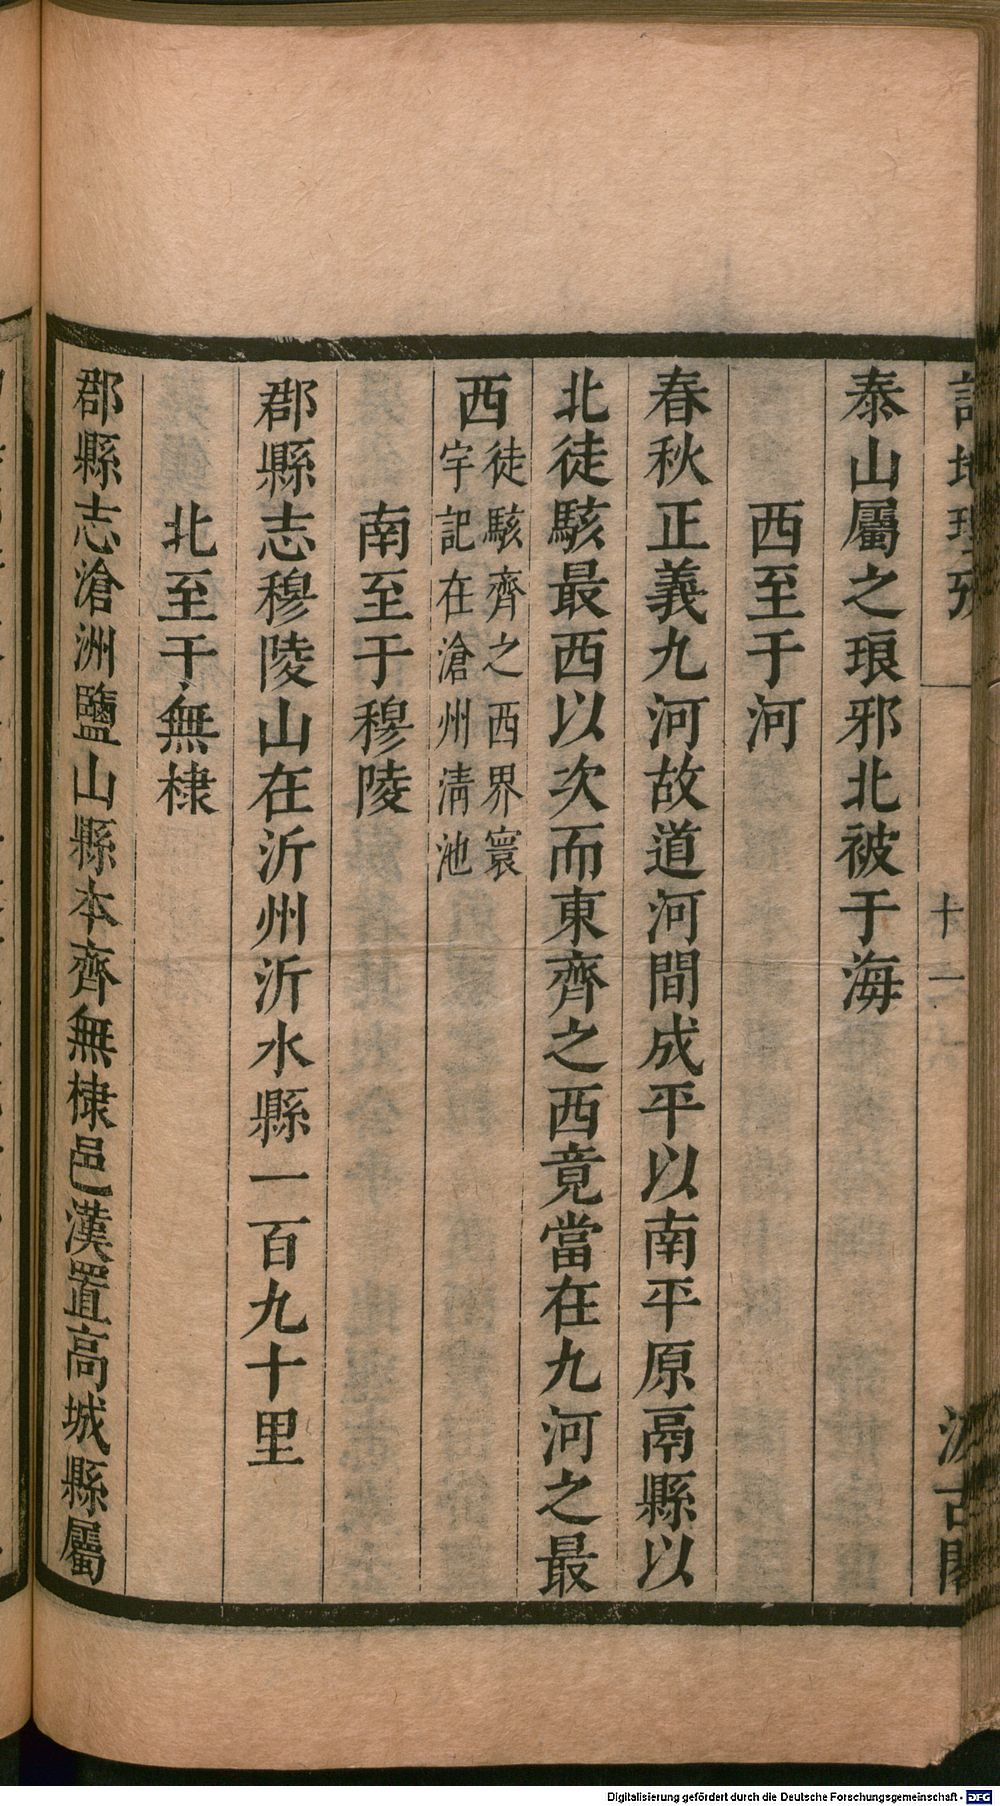 泰山屬之琅邪北被于海
西至于河
春秋正義九河故道河間成平以南平原鬲縣以
北徒駭最西以次而東齊之西竟當在九河之最
西徒駭齊之西界寰
宇記在滄州清池
南至于穆陵
郡縣志穆陵山在沂州沂水縣一百九十里
北至于無棣
郡縣志滄洲鹽山縣本齊無棣邑漢置高城縣屬
Digitalisierung gefördert durch die Deutsche Forschungsgemeinschaft - DFG